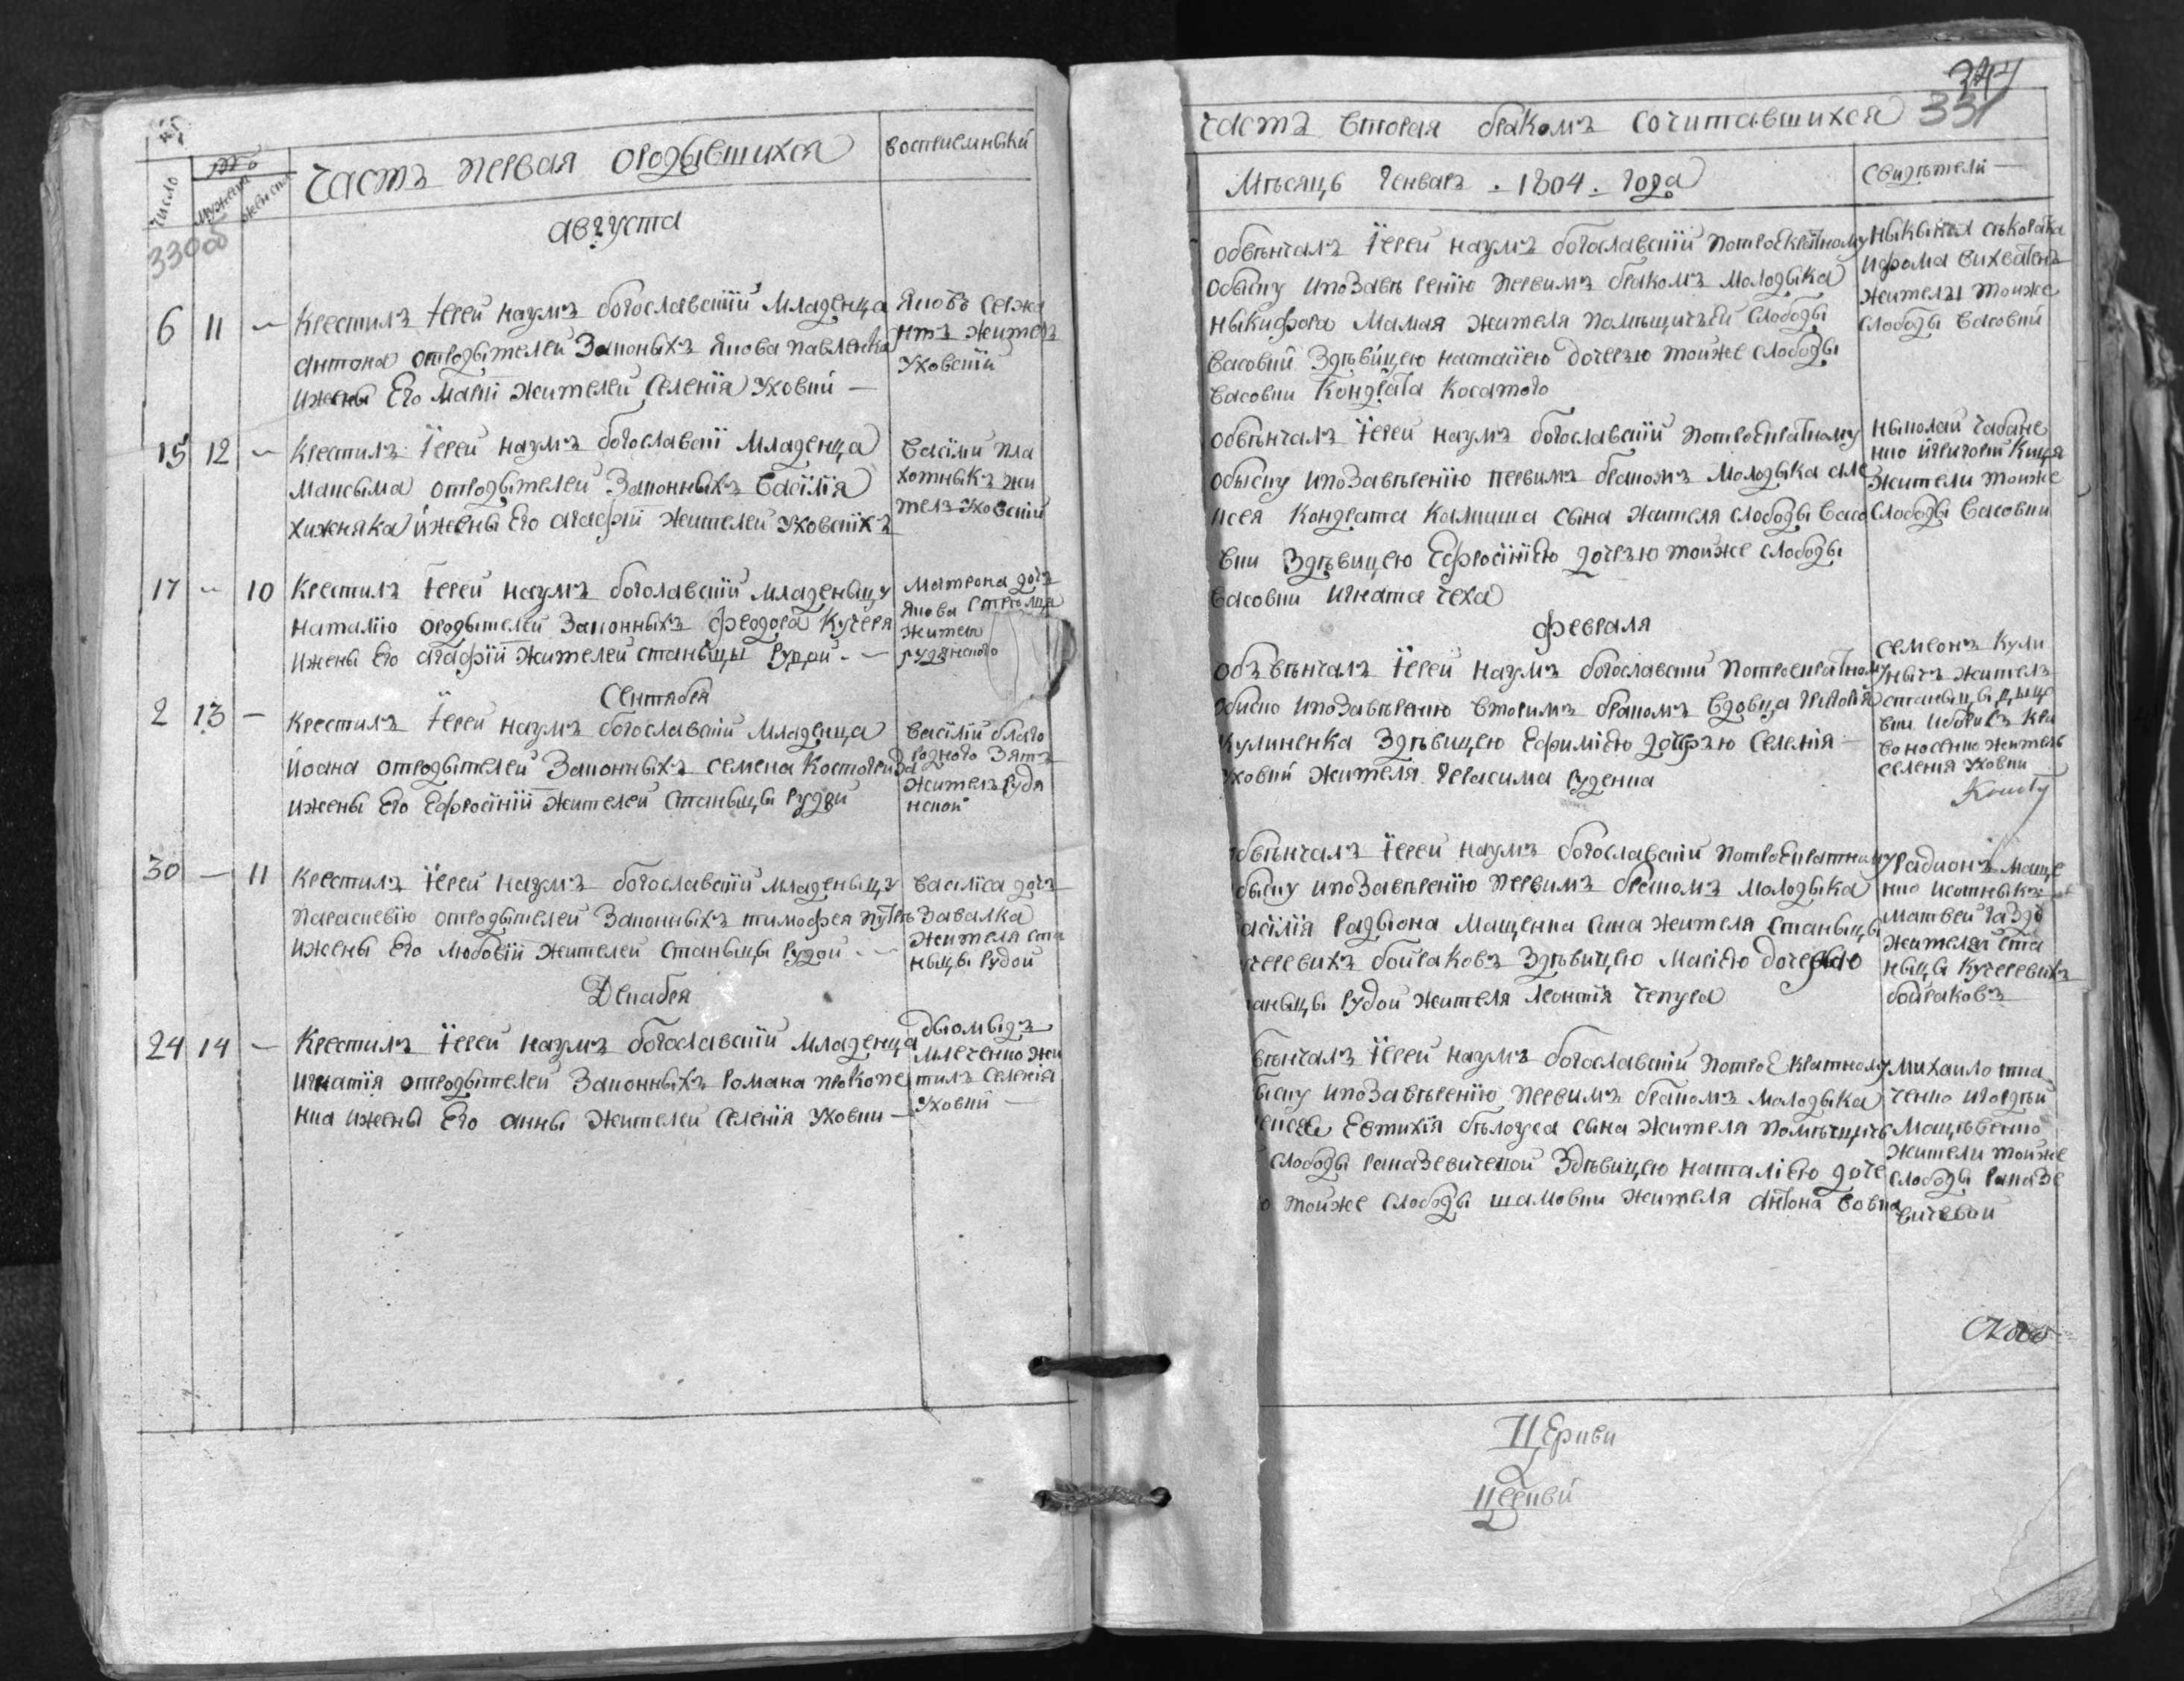 число
мужеска
женска
Частъ первая ородывшихся
восприемныки
330об
августа
6 11 — Крестилъ Іерей наумъ богославскій младенца
антона отродытелей Законыхъ Якова павленка
ижены Его Маріи жителей Селенія Уховки —
Яковъ сержа
нтъ жителъ
Уховскій
15 12 — Крестилъ Іерей наумъ богославскій младенца
максыма отродытелей Законныхъ Васілія
хижняка ижены Его агафіи жителей Уховскіхъ
Васілий пла
хотныкъ жи
телъ Уховскій
17 — 10 Крестилъ Іерей наумъ богославскій младеныцу
наталію ородытелей Законныхъ феодора Кучеря
ижены Его агафіи жителей станыцы Рудой —
Матрона дочъ
Якова
жителя
рудянского
Сентября
2 13 — Крестилъ Іерей наумъ богославскій младенца
Йоана отродытелей Законныхъ семена
ижены Его Ефросініи жителей станыцы Рудой
Васілій благо
родного Зятъ
жителъ Рудя
нской
30 — 11 Крестилъ Іерей наумъ богославскій младеныцу
Параскевію отродытелей Законныхъ тимофея
ижены Его любовіи жителей станыцы Рудой —
Васіліса дочъ
Завалка
жителя ста
ныцы Рудой
Декабря
24 14 — Крестилъ Іерей наумъ богославскій младенца
игнатія отродытелей Законныхъ Романа прокопе
нка ижены Его анны жителей Селенія Уховки —
дыомыдъ
млеченко жи
тилъ Селенія
Уховки —
331
Частъ вторая бракомъ сочитавшихся
Мѣсяцъ Генваръ . 1804 . года
Свидѣтели —
Обвѣнчалъ Іерей наумъ богославскій потроекратному
обыску ипозавѣренію первимъ бракомъ молодыка
ныкифора Мамая жителя помѣщичъей слободы
Васовки Здѣвицею настасіею дочерзю тойже слободы
васовки Кондрата Косатого
ныкыта
ифома
жителы тойже
слободы Васовки
обвѣнчалъ Іерей наумъ богославскій потроекратному
обыску ипозавѣренію первимъ бракомъ молодыка але
ксея Кондрата Колтиша сына жителя слободы Васо
вки Здѣвицею Ефросініею дочерзю тойже слободы
васовки игната чеха
ныколай чабане
нко ігригорій Киця
жители тойже
слободы Васовки
февраля
объвѣнчалъ Іерей наумъ богославскій потроекратному
обиско ипозавѣренію вторимъ бракомъ вдовца
Кулиненка Здѣвицею Ефиміею дочерзю селенія —
уховки жителя герасима руденка
семеонъ Кули
нычъ жителъ
станыцы
вки иборисъ Кра
воносенко жителъ
селенія Уховки
бвѣнчалъ Іерей наумъ богославскій потроекратному
быску ипозавѣренію первимъ бракомъ молодыка
асілія Радыона Мащенка сина жителя станыцы
черевихъ боираковъ Здѣвицею Маріею дочерью
аныцы Рудой жителя леонтія чепура
Радионъ маще
нко исотныкъ
матвей
жителяи ста
ныцы Кучеревихъ
боираковъ
вѣнчалъ Іерей наумъ богославскій потроекратному
быску ипозавѣренію первимъ бракомъ молодыка
Евтихія бѣлоуса сына жителя помѣщичь
слободы раказевичевой Здѣвицею наталіею доче
ю тойже слободы шамовки жителя антона вовка
михаило тка
ченко игордѣй
мащѣвенко
жители тойже
слободы раказе
вичевои
Церкви
Церкви